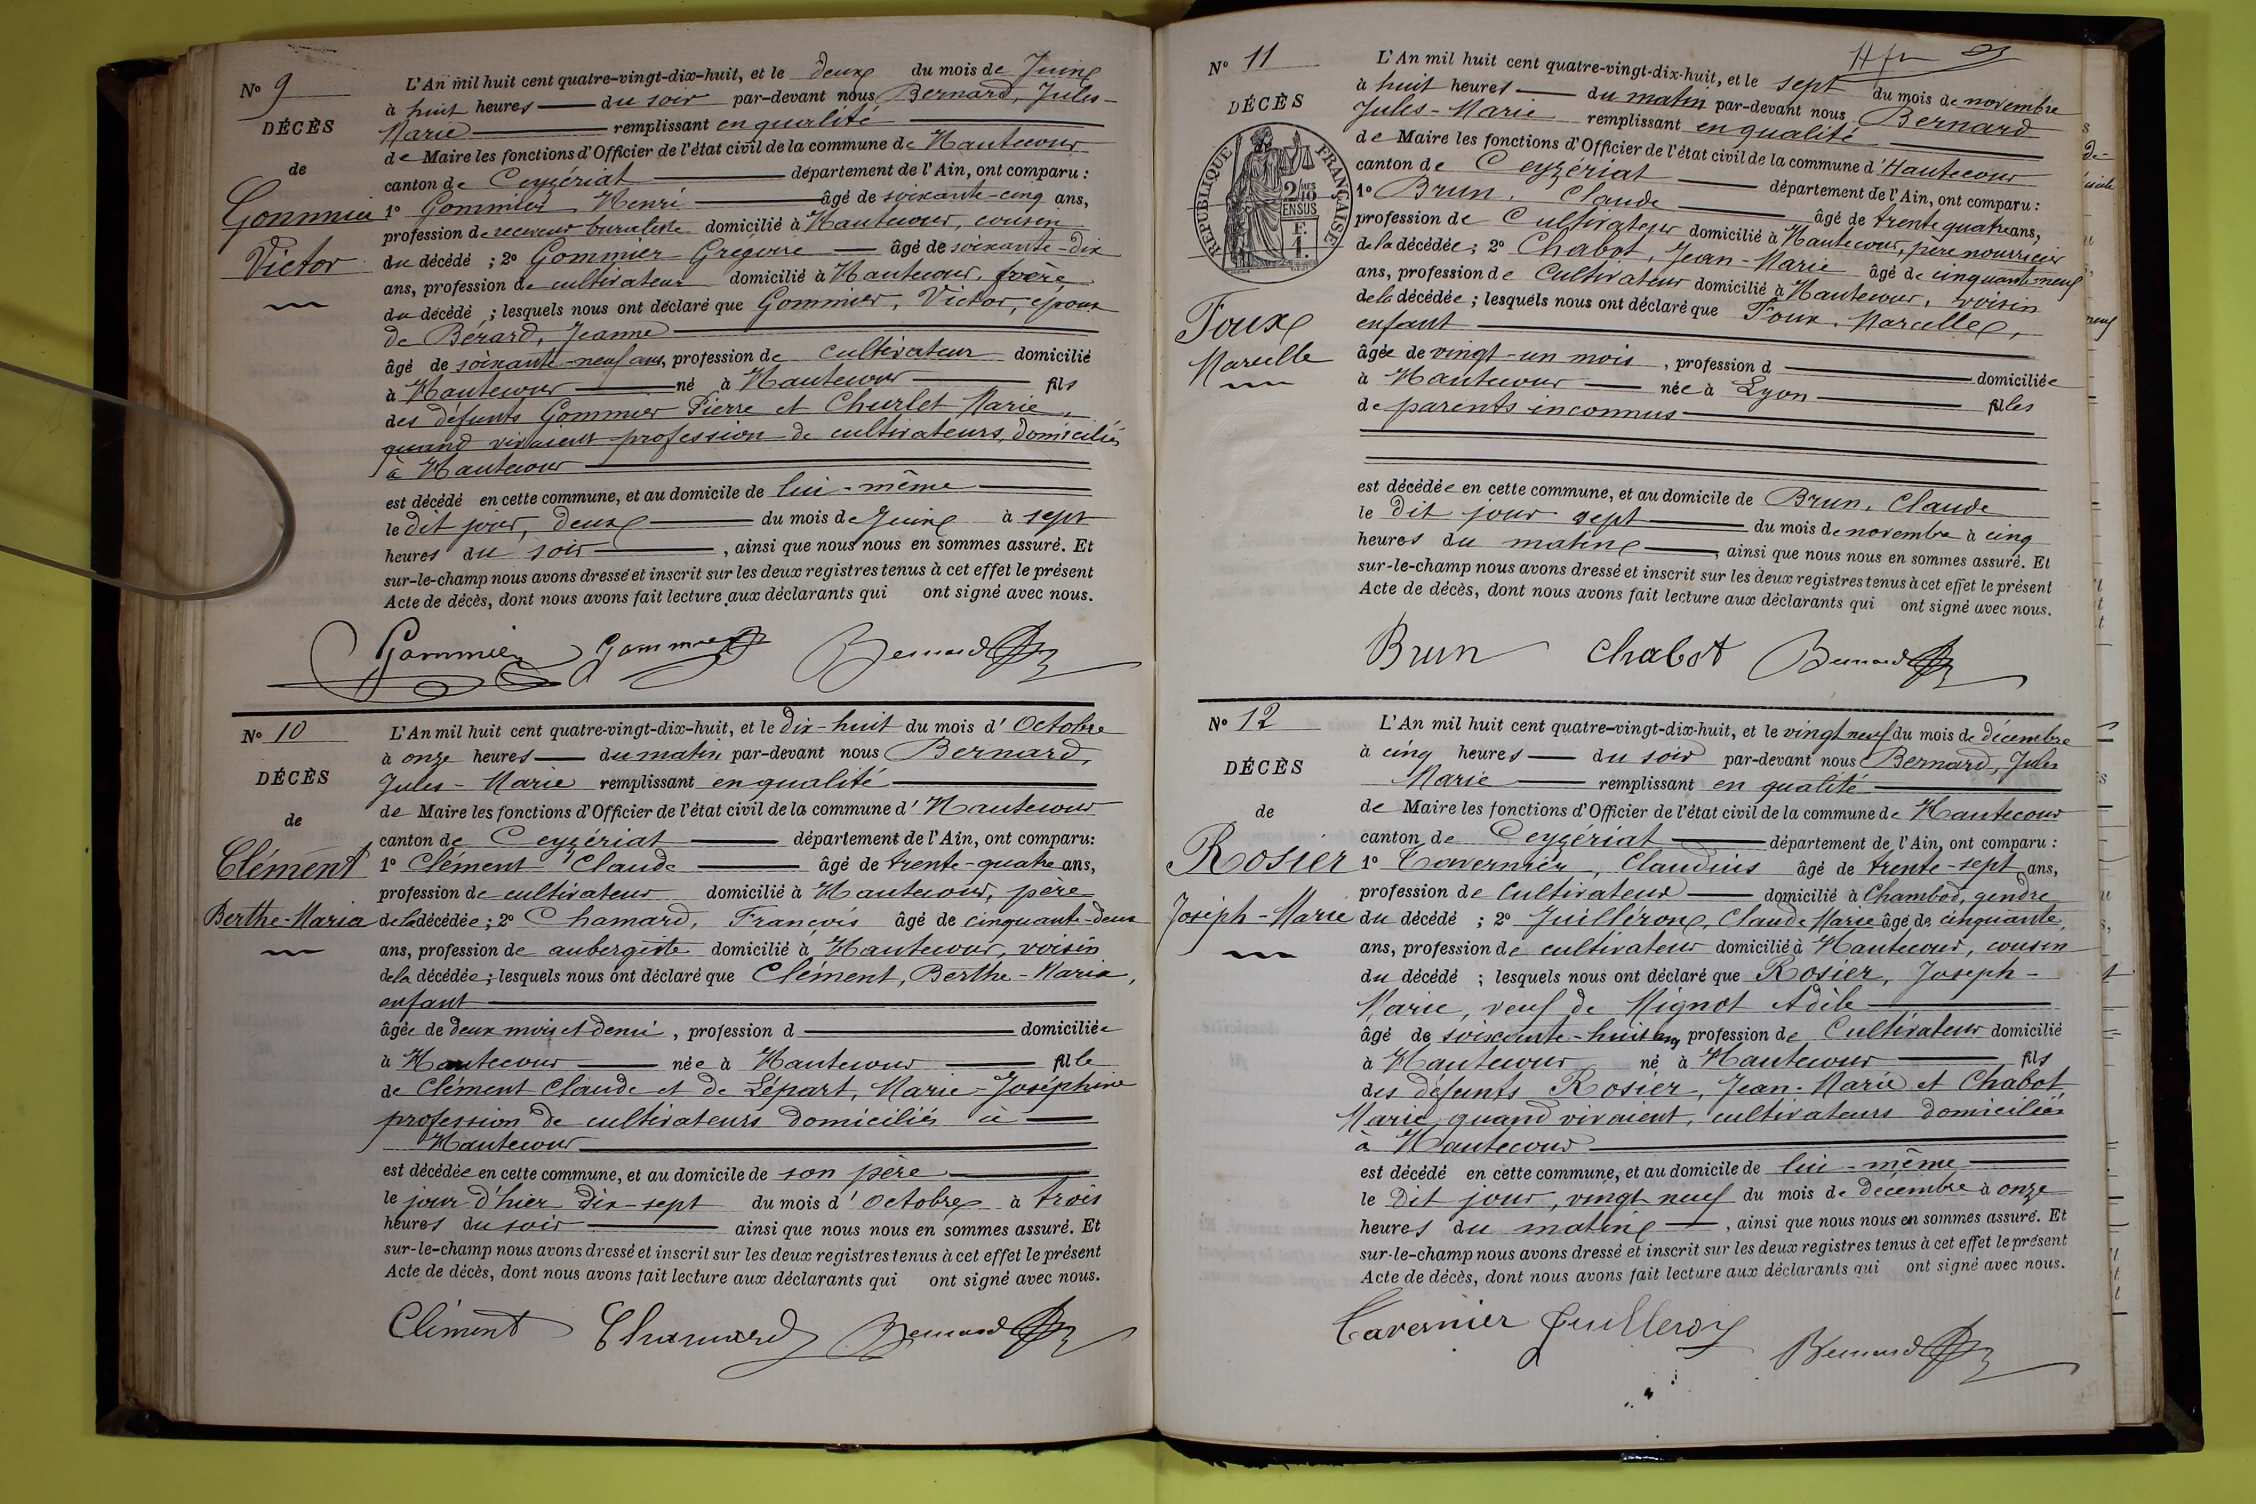 N° 9
DÉCÈS
de
Gommier
Victor
L'An mil huit cent quatre-vingt-dix-huit, et le deux du mois de Juin
à huit heures du soir par-devant nous Bernard, Jules-
Marie remplissant en qualité
de Maire les fonctions d'Officier de l'état civil de la commune de Hautecour
canton de Ceyzériat département de l'Ain, ont comparu :
1° Gommier Henri âgé de soixante-cinq ans,
profession de receveur buraliste domicilié à Hautecour, cousin
du décédé ; 2° Gommier Grégoire âgé de soixante-dix
ans, profession de cultivateur domicilié à Hautecour, frère
du décédé ; lesquels nous ont déclaré que Gommier, Victor, époux
de Bérard, Jeanne
âgé de soixante-neuf ans, profession de cultivateur domicilié
à Hautecour né à Hautecour fils
des défunts Gommier Pierre et Churlet Marie,
quand vivaient profession de cultivateurs, domiciliés
à Hautecour
est décédé en cette commune, et au domicile de lui-même
le dit jour, deux du mois de Juin à sept
heures du soir, ainsi que nous nous en sommes assuré. Et
sur-le-champ nous avons dressé et inscrit sur les deux registres tenus à cet effet le présent
Acte de décès, dont nous avons fait lecture aux déclarants qui ont signé avec nous.
Gommier Gommier Bernard
N° 10
DÉCÈS
de
Clément
Berthe-Maria
L'An mil huit cent quatre-vingt-dix-huit, et le dix-huit du mois d'Octobre
à onze heures du matin par-devant nous Bernard,
Jules-Marie remplissant en qualité
de Maire les fonctions d'Officier de l'état civil de la commune d'Hautecour
canton de Ceyzériat département de l'Ain, ont comparu:
1° Clément Claude âgé de trente-quatre ans,
profession de cultivateur domicilié à Hautecour, père
de la décédée ; 2° Chamard, François âgé de cinquante-deux
ans, profession de aubergiste domicilié à Hautecour, voisin
de la décédée ; lesquels nous ont déclaré que Clément, Berthe-Maria,
enfant
âgée de deux mois et demi, profession d domiciliée
à Hautecour née à Hautecour fille
de Clément Claude et de Lépart, Marie-Joséphine
profession de cultivateurs domiciliés à
Hautecour
est décédée en cette commune, et au domicile de son père
le jour d'hier dix-sept du mois d'Octobre à trois
heures du soir ainsi que nous nous en sommes assuré. Et
sur-le-champ nous avons dressé et inscrit sur les deux registres tenus à cet effet le présent
Acte de décès, dont nous avons fait lecture aux déclarants qui ont signé avec nous.
Clément Chamard Bernard
N° 11
DÉCÈS
RÉPUBLIQUE FRANÇAISE
2/10
EN SUS
F.
1.
Foux
Marcelle
L'An mil huit cent quatre-vingt-dix-huit, et le sept du mois de novembre
à huit heures du matin par-devant nous Bernard
Jules-Marie remplissant en qualité
de Maire les fonctions d'Officier de l'état civil de la commune d'Hautecour
canton de Ceyzériat département de l'Ain, ont comparu :
1° Brun, Claude âgé de trente quatre ans,
profession de Cultivateur domicilié à Hautecour, père nourricier
de la décédée ; 2° Chabot, Jean-Marie âgé de cinquante-neuf
ans, profession de Cultivateur domicilié à Hautecour, voisin
de la décédée ; lesquels nous ont déclaré que Foux, Marcelle,
enfant
âgée de vingt-un mois, profession d domiciliée
à Hautecour née à Lyon filles
de parents inconnus
est décédée en cette commune, et au domicile de Brun, Claude
le dit jour sept du mois de novembre à cinq
heures du matin, ainsi que nous nous en sommes assuré. Et
sur-le-champ nous avons dressé et inscrit sur les deux registres tenus à cet effet le présent
Acte de décès, dont nous avons fait lecture aux déclarants qui ont signé avec nous.
Brun Chabot Bernard
N° 12
DÉCÈS
de
Rosier
Joseph-Marie
L'An mil huit cent quatre-vingt-dix-huit, et le vingt neuf du mois de décembre
à cinq heures du soir par-devant nous Bernard, Jules
Marie remplissant en qualité
de Maire les fonctions d'Officier de l'état civil de la commune de Hautecour
canton de Ceyzériat département de l'Ain, ont comparu :
1° Tavernier, Claudius âgé de trente-sept ans,
profession de Cultivateur domicilié à Chambod, gendre
du décédé ; 2° Juilléron, Claude Marie âgé de cinquante,
ans, profession de cultivateur domicilié à Hautecour, cousin
du décédé ; lesquels nous ont déclaré que Rosier, Joseph-
Marie, veuf de Mignot Adèle
âgé de soixante-huit ans profession de Cultivateur domicilié
à Hautecour né à Hautecour fils
des défunts Rosier, Jean-Marie et Chabot
Marie quand vivaient, cultivateurs domiciliés
à Hautecour
est décédé en cette commune, et au domicile de lui-même
le dit jour, vingt neuf du mois de décembre à onze
heures du matin, ainsi que nous nous en sommes assuré. Et
sur-le-champ nous avons dressé et inscrit sur les deux registres tenus à cet effet le présent
Acte de décès, dont nous avons fait lecture aux déclarants qui ont signé avec nous.
Tavernier Juilleron
Bernard